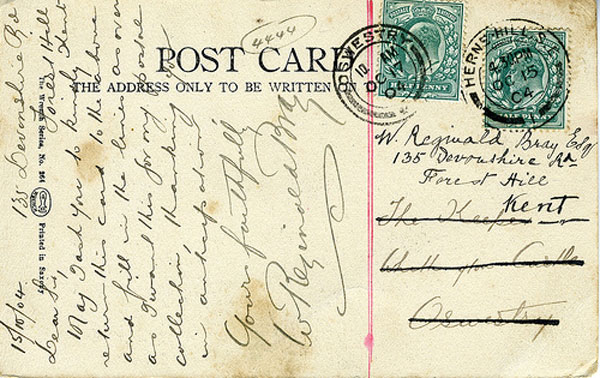 4444
POST CARD
THE ADDRESS ONLY TO BE WRITTEN ON
The Wrench Series, No. 264
Printed in Saxony
135 Devonshire Rd
Forest Hill
Kent
15/10/04
Dear Sir,
May I ask you to kindly
return this card to the above
and fill in the lines as over
as I want this for my postal
collection, thanking you
in anticipation
Yours faithfully
W Reginald Bray
OSWESTRY
OC 17
04
HERNE-HILL. S.E.
4.30PM
OC 15
04
HALF PENNY
HALF PENNY
W. Reginald Bray Esq
135 Devonshire Rd
Forest Hill
Kent
The Keeper
Castle
Oswestry